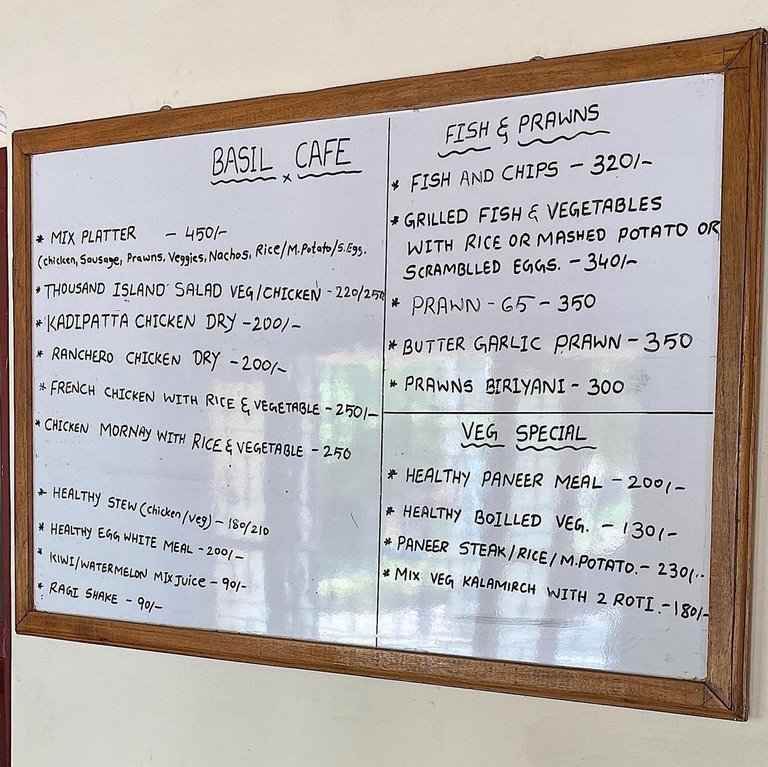 BASIL CAFE
* MIX PLATTER - 450/-
(chicken, Sausage, Prawns, Veggies, Nachos, Rice/M.Potato/S.Egg.
* THOUSAND ISLAND SALAD VEG/CHICKEN - 220/250
* KADIPATTA CHICKEN DRY - 200/-
* RANCHERO CHICKEN DRY - 200/-
* FRENCH CHICKEN WITH RICE & VEGETABLE - 250/-
* CHICKEN MORNAY WITH RICE & VEGETABLE - 250
* HEALTHY STEW (chicken/veg) - 180/210
* HEALTHY EGG WHITE MEAL - 200/-
* KIWI/WATERMELON MIX JUICE - 90/-
* RAGI SHAKE - 90/-
FISH & PRAWNS
* FISH AND CHIPS - 320/-
* GRILLED FISH & VEGETABLES
WITH RICE OR MASHED POTATO OR
SCRAMBLLED EGGS. - 340/-
* PRAWN - 65 - 350
* BUTTER GARLIC PRAWN - 350
* PRAWNS BIRIYANI - 300
VEG SPECIAL
* HEALTHY PANEER MEAL - 200/-
* HEALTHY BOILLED VEG. - 130/-
* PANEER STEAK/RICE/M.POTATO. - 230/-
* MIX VEG KALAMIRCH WITH 2 ROTI. - 180/-